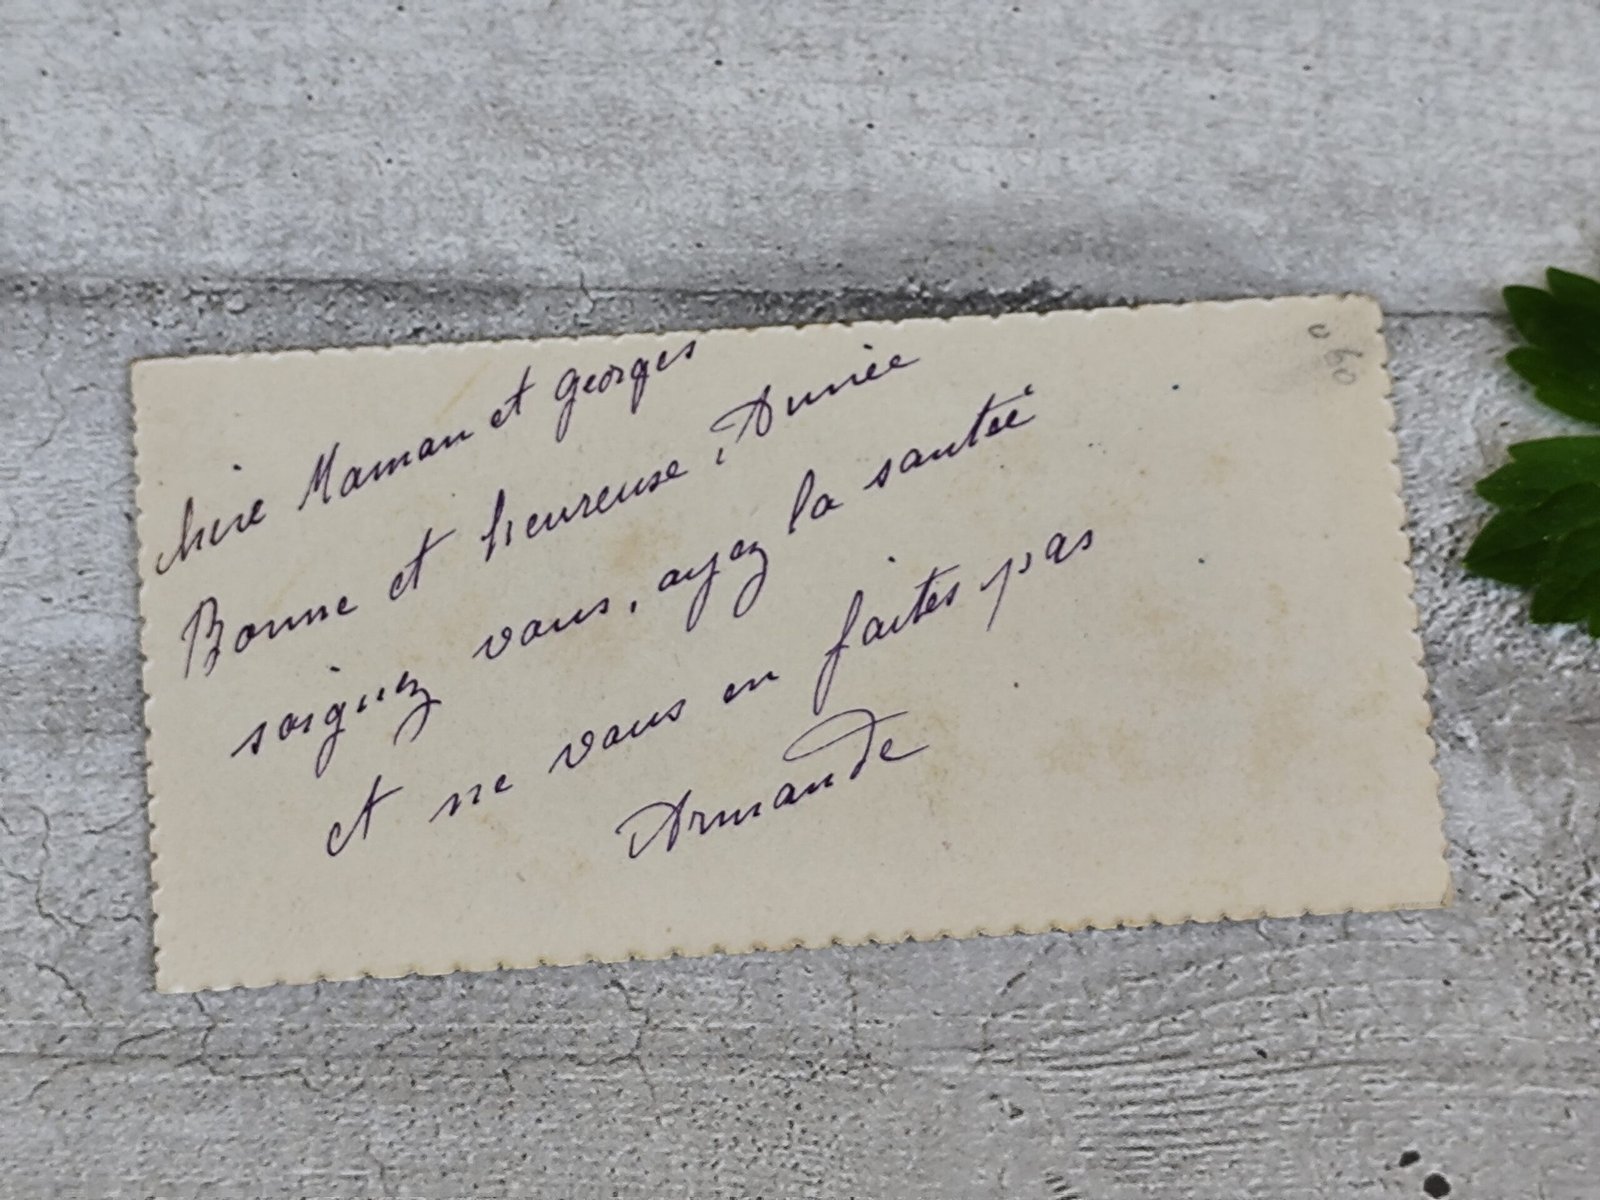 chère Maman et georges
Bonne et heureuse, Année
soignez vous, ayez la santée
et ne vous en faites pas
Armande